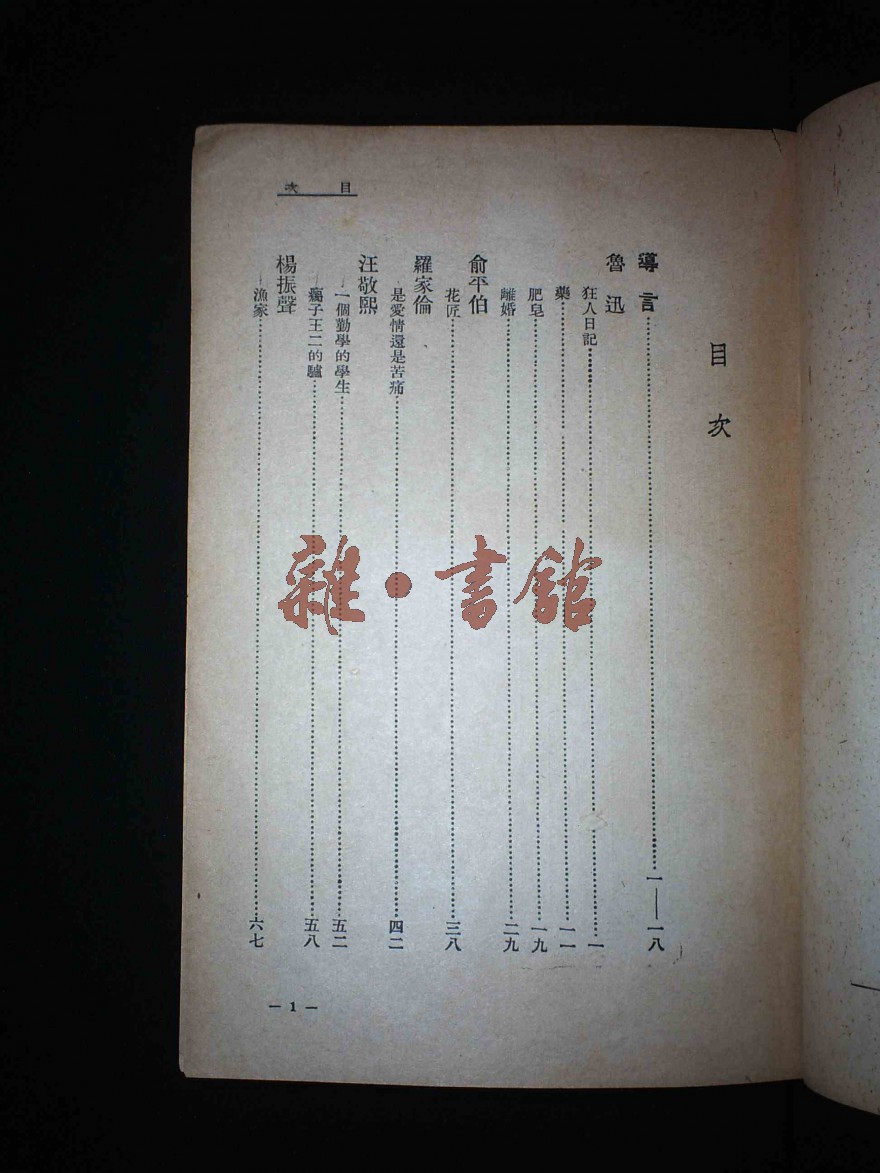 目次
目次
導言一——一八
魯迅
狂人日記一
藥一一
肥皂一九
離婚二九
俞平伯
花匠三八
羅家倫
是愛情還是苦痛四二
汪敬熙
一個勤學的學生五二
瘸子王二的驢五八
楊振聲
漁家六七
— 1 —
雜·書館